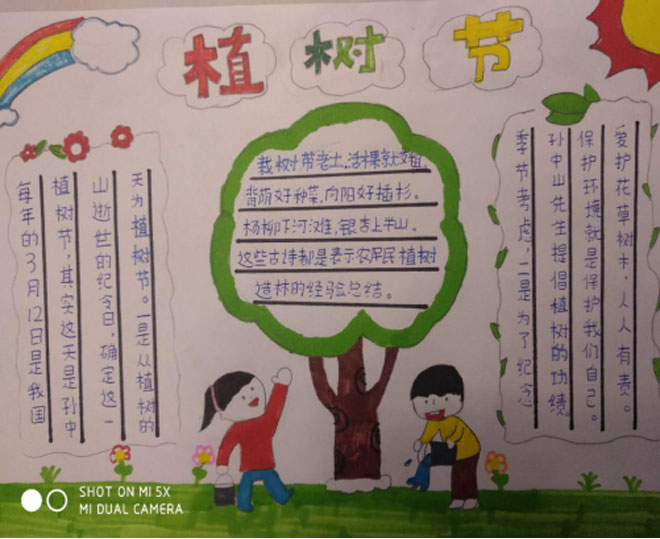 植树节
每年的3月12日是我国
植树节,其实这天是孙中
山逝世的纪念日,确定这一
天为植树节。一是从植树的
栽树带老土,活棵就
背荫好种菜,向阳好插杉。
杨柳下河滩,银杏上半山。
这些古诗都是表示农居民植树
造林的经验总结。
季节考虑,二是为了纪念
孙中山先生提倡植树的功绩。
保护环境就是保护我们自己。
爱护花草树木,人人有责。
SHOT ON MI 5X
MI DUAL CAMERA